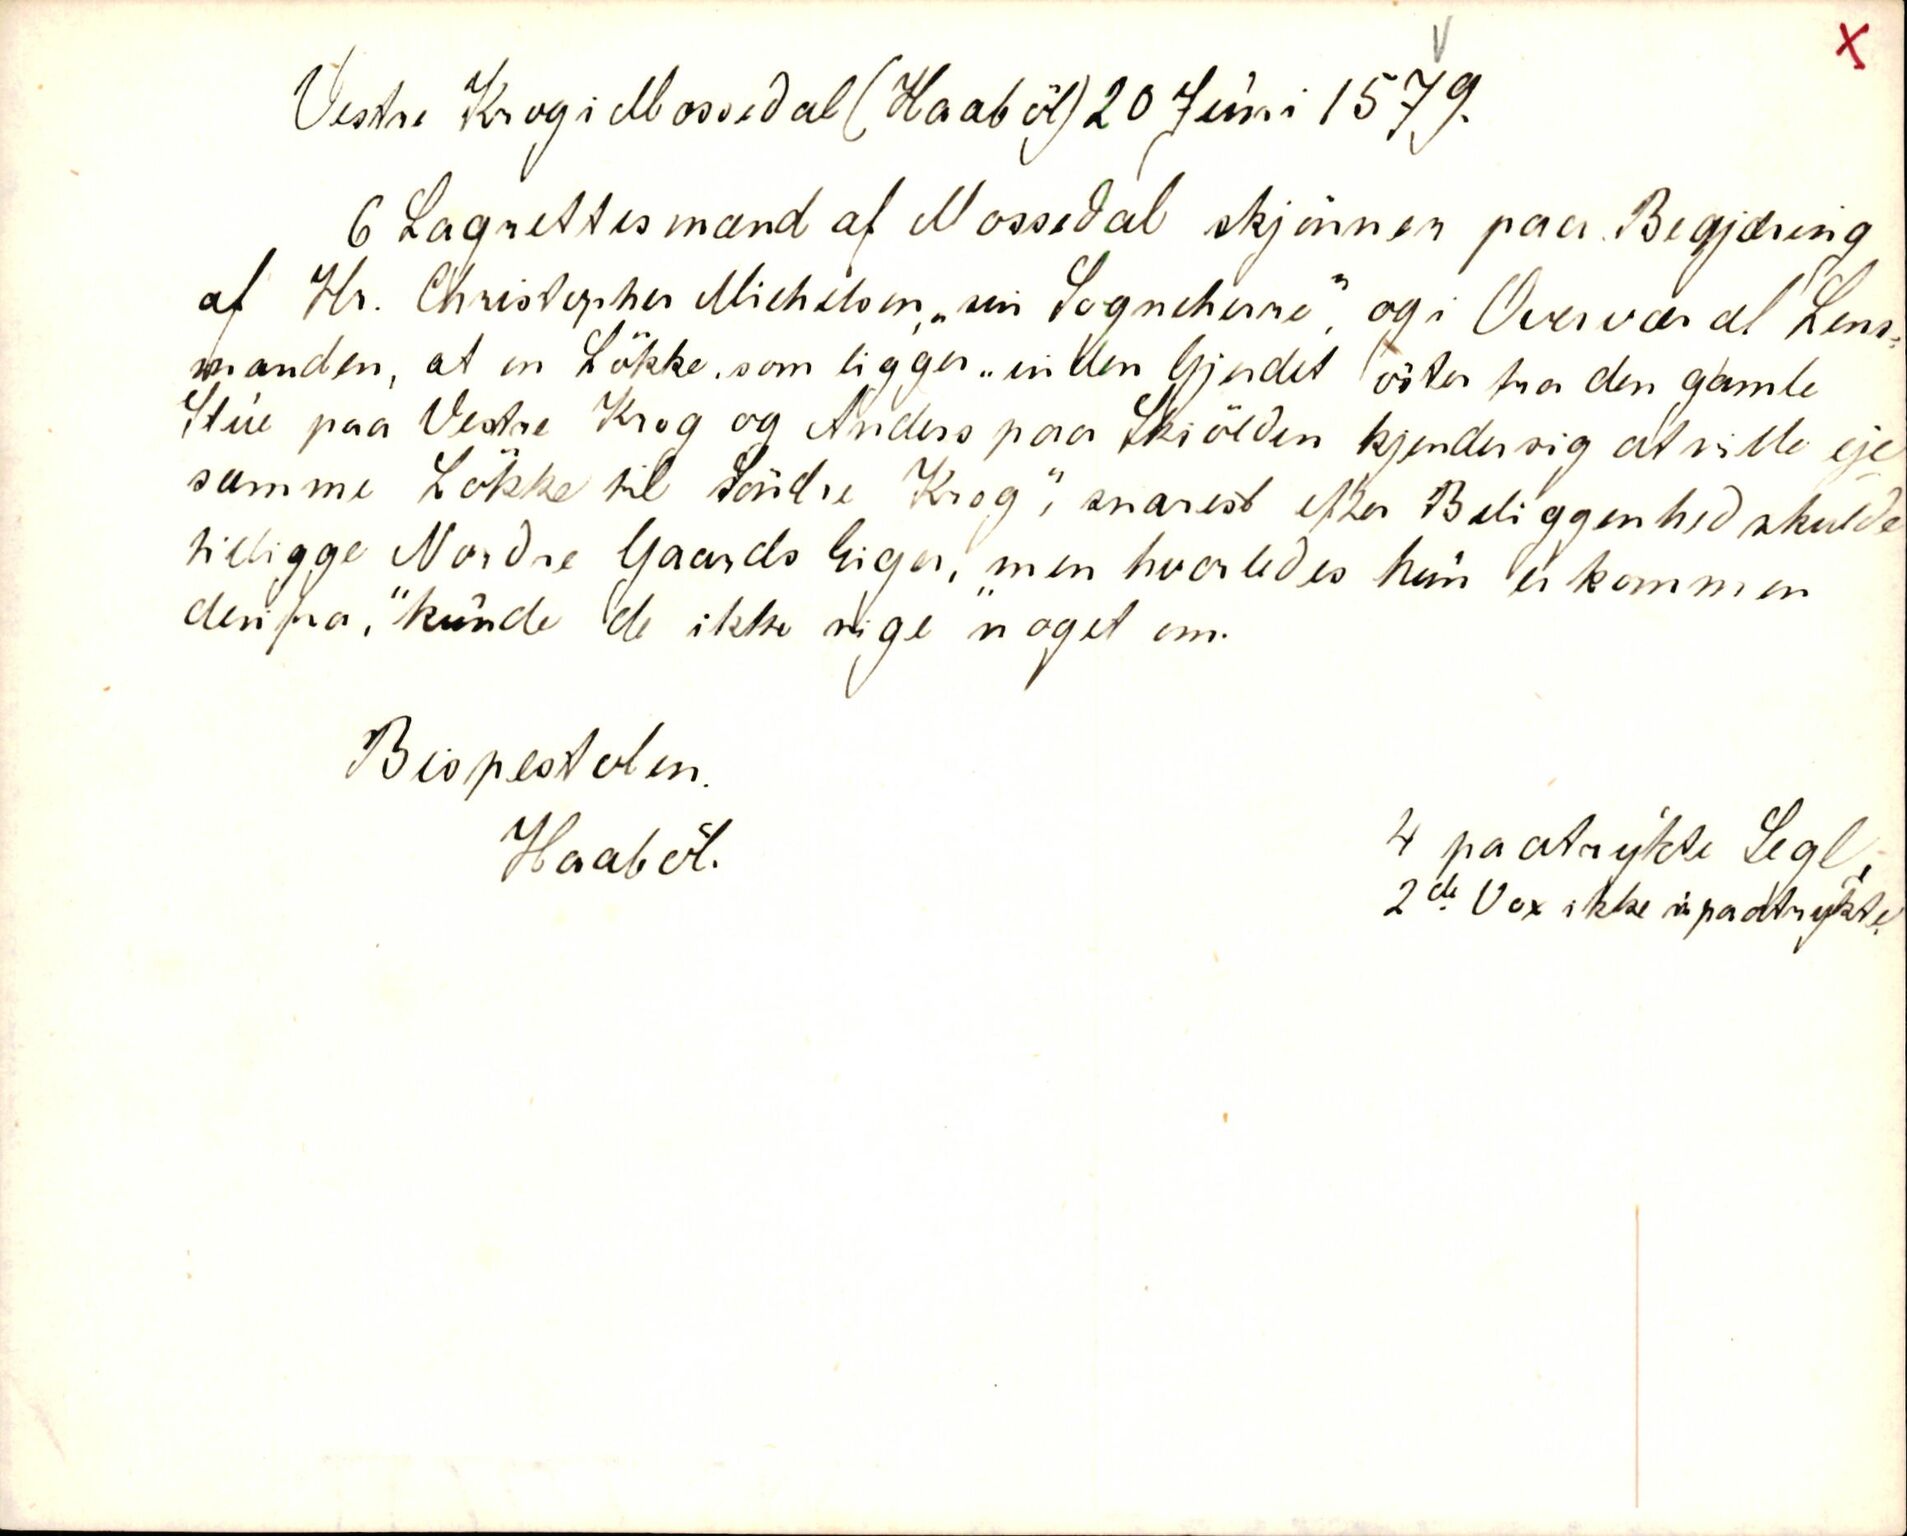 x
Vestre Krog i Mossedal (Haaböl) 20 Juni 1579.
6 Lagrettesmænd af Mossedal skjönner paa Begjæring
af Hr. Christopher Michelsen, „sin Sogneherre”, og i Overvær af Lens-
manden, at en Lökke, som ligger „inden Gjerdet öster fra den gamle
Stue paa Vestre Krog og Anders paa Skiölden kjender sig at ville eje
samme Lökke til Söndre Krog”, snarest efter Beliggenhed skulde
tilligge Nordre Gaards Eiger, men hvorledes hun er kommen
derifra, “kunde de ikke sige” noget om.
Bispestolen.
Haaböl.
4 paatrykte Segl,
2de Vox ikke paatrykte.